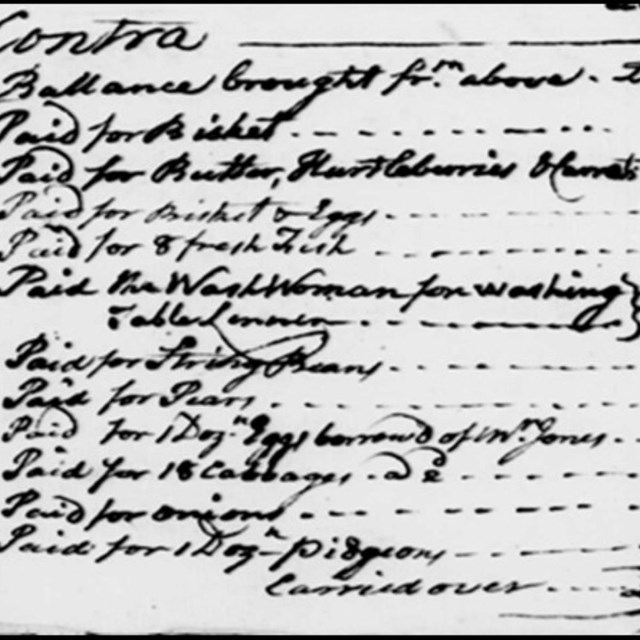 Contra
Ballance brought fr.m above.
Paid for Bisket
Paid for Butter, Hurtleberries &
Paid for Bisket & Eggs
Paid for 8 fresh Fish
Paid the Wash Woman for washing
Table Lennin
Paid for String Beans
Paid for Pears
Paid for 1 Doz.n Eggs borrow'd of Mr. Jones
Paid for 18 Cabbages
Paid for onions
Paid for 1 Doz.n pidgeons
Carried over